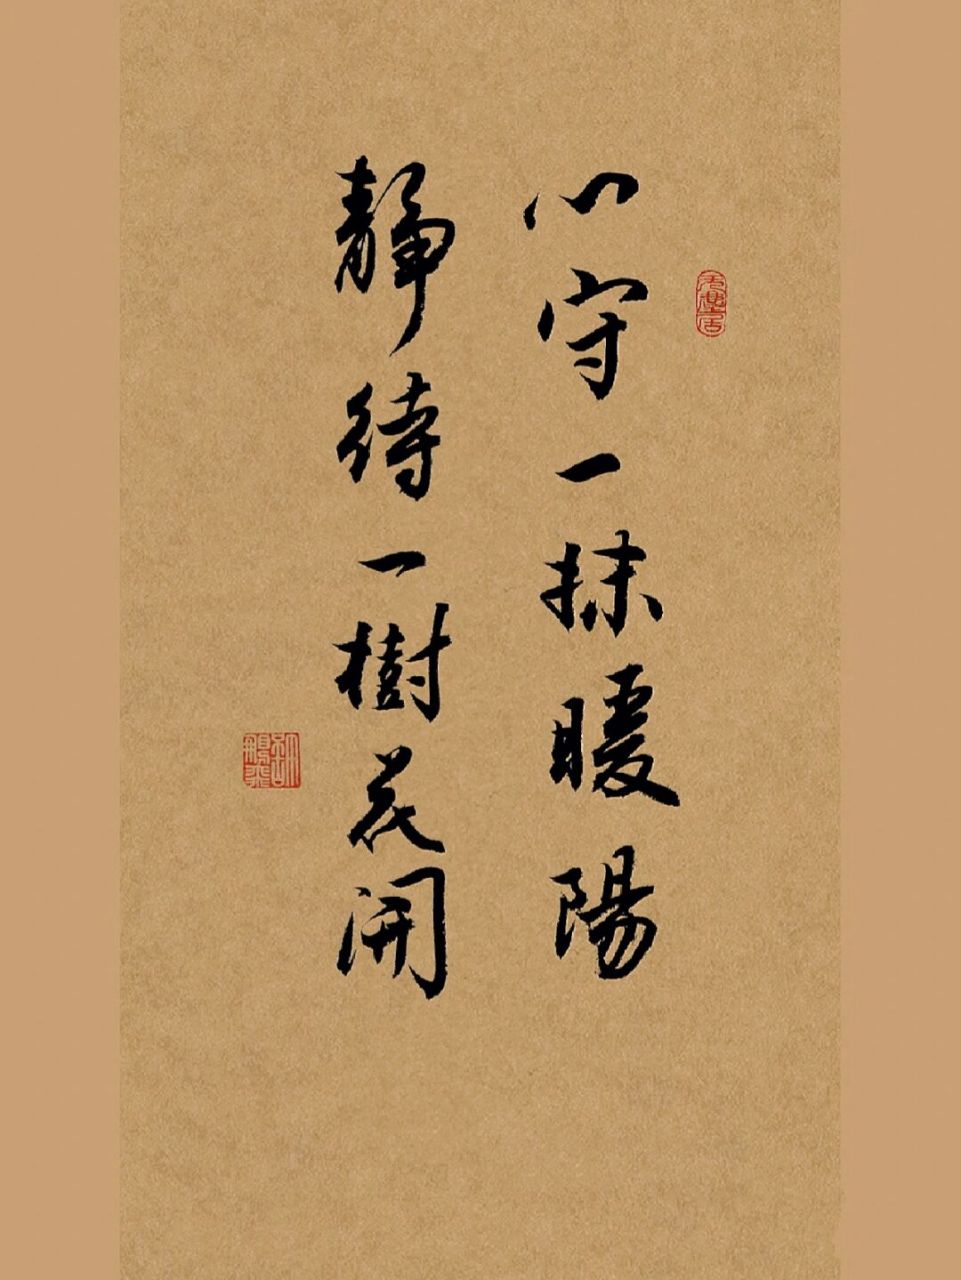 心守一抹暖陽
靜待一樹花開